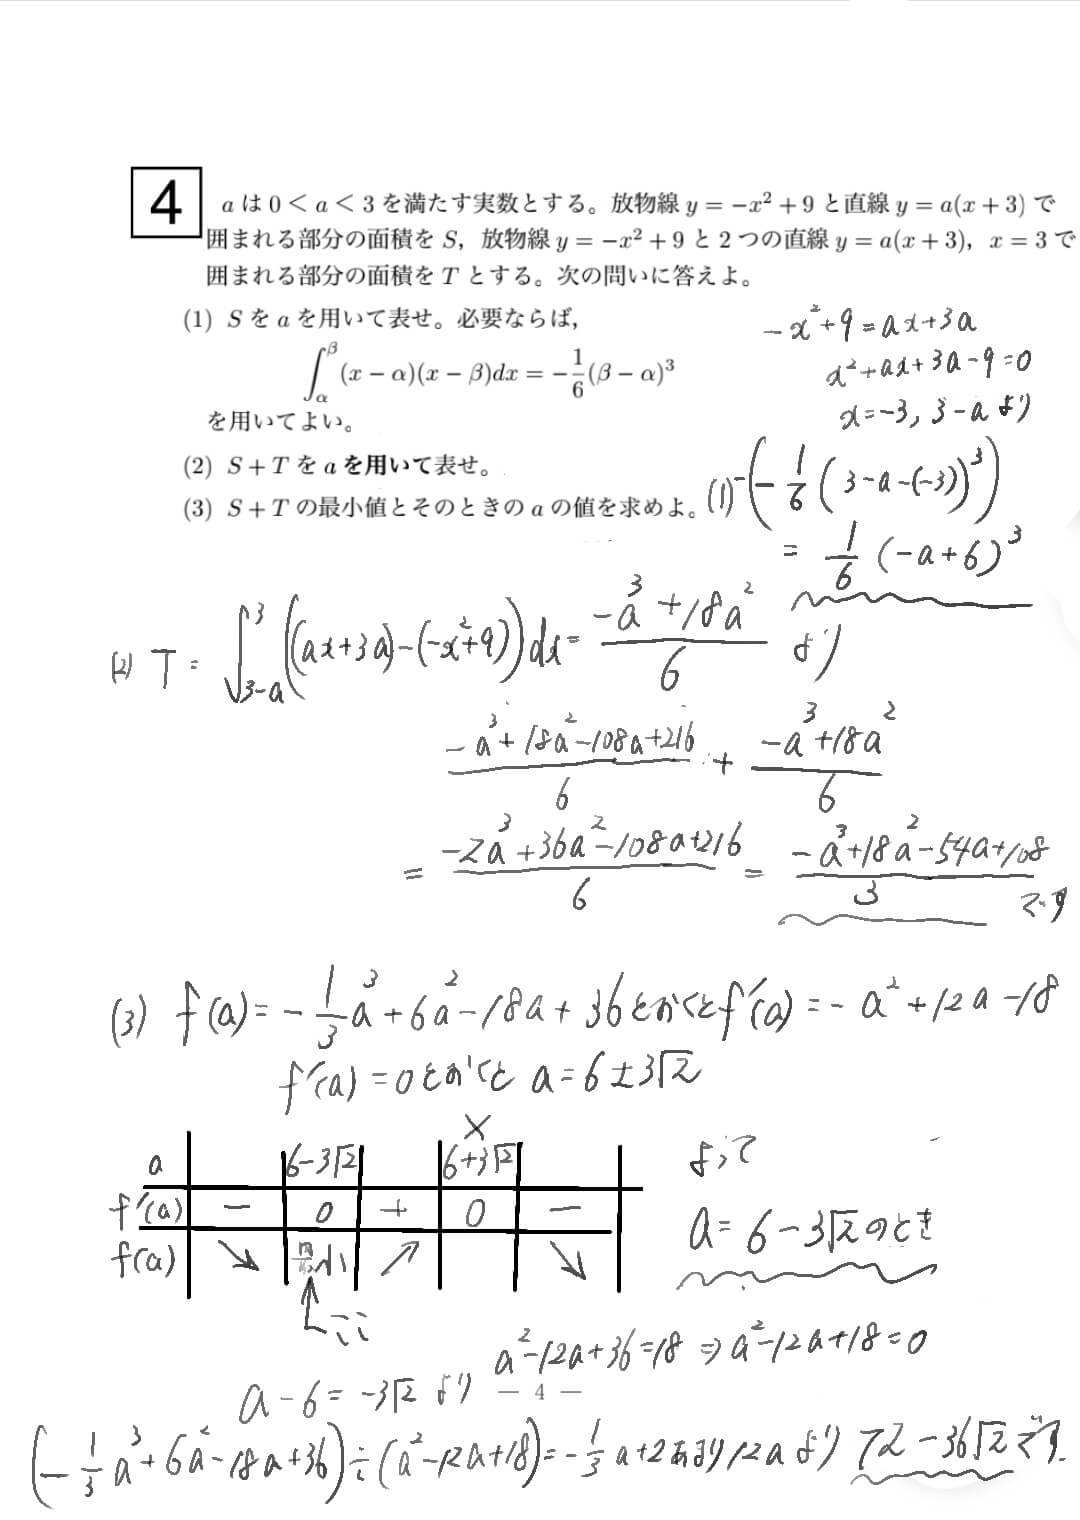 4
aは0<a<3を満たす実数とする。放物線y=-x²+9と直線y=a(x+3)で
囲まれる部分の面積をS，放物線y=-x²+9と2つの直線y=a(x+3)，x=3で
囲まれる部分の面積をTとする。次の問いに答えよ。
(1) Sをaを用いて表せ。必要ならば，
∫_α^β (x-α)(x-β)dx = -1/6(β-α)³
を用いてよい。
(2) S+Tをaを用いて表せ。
(3) S+Tの最小値とそのときのaの値を求めよ。
-x²+9=ax+3a
x²+ax+3a-9=0
x=-3, 3-aより
(1) -(-1/6(3-a-(-3))³)
= 1/6(-a+6)³
(2) T= ∫_{3-a}^3((ax+3a)-(-x²+9))dx= (-a³+18a²)/6 より
(-a³+18a²-108a+216)/6 + (-a³+18a²)/6
= (-2a³+36a²-108a+216)/6 = (-a³+18a²-54a+108)/3 です
(3) f(a)=-1/3a³+6a²-18a+36とおくとf'(a)=-a²+12a-18
f'(a)=0とおくと a=6±3√2
×
a 6-3√2 6+3√2
f'(a) - 0 + 0 -
f(a) ↘ 最小 ↗ ↘
↑ここ
よって
a=6-3√2のとき
a²-12a+36=18⇒a²-12a+18=0
a-6=-3√2より
— 4 —
(-1/3a³+6a²-18a+36)÷(a²-12a+18)=-1/3a+2あまり12aより 72-36√2です.